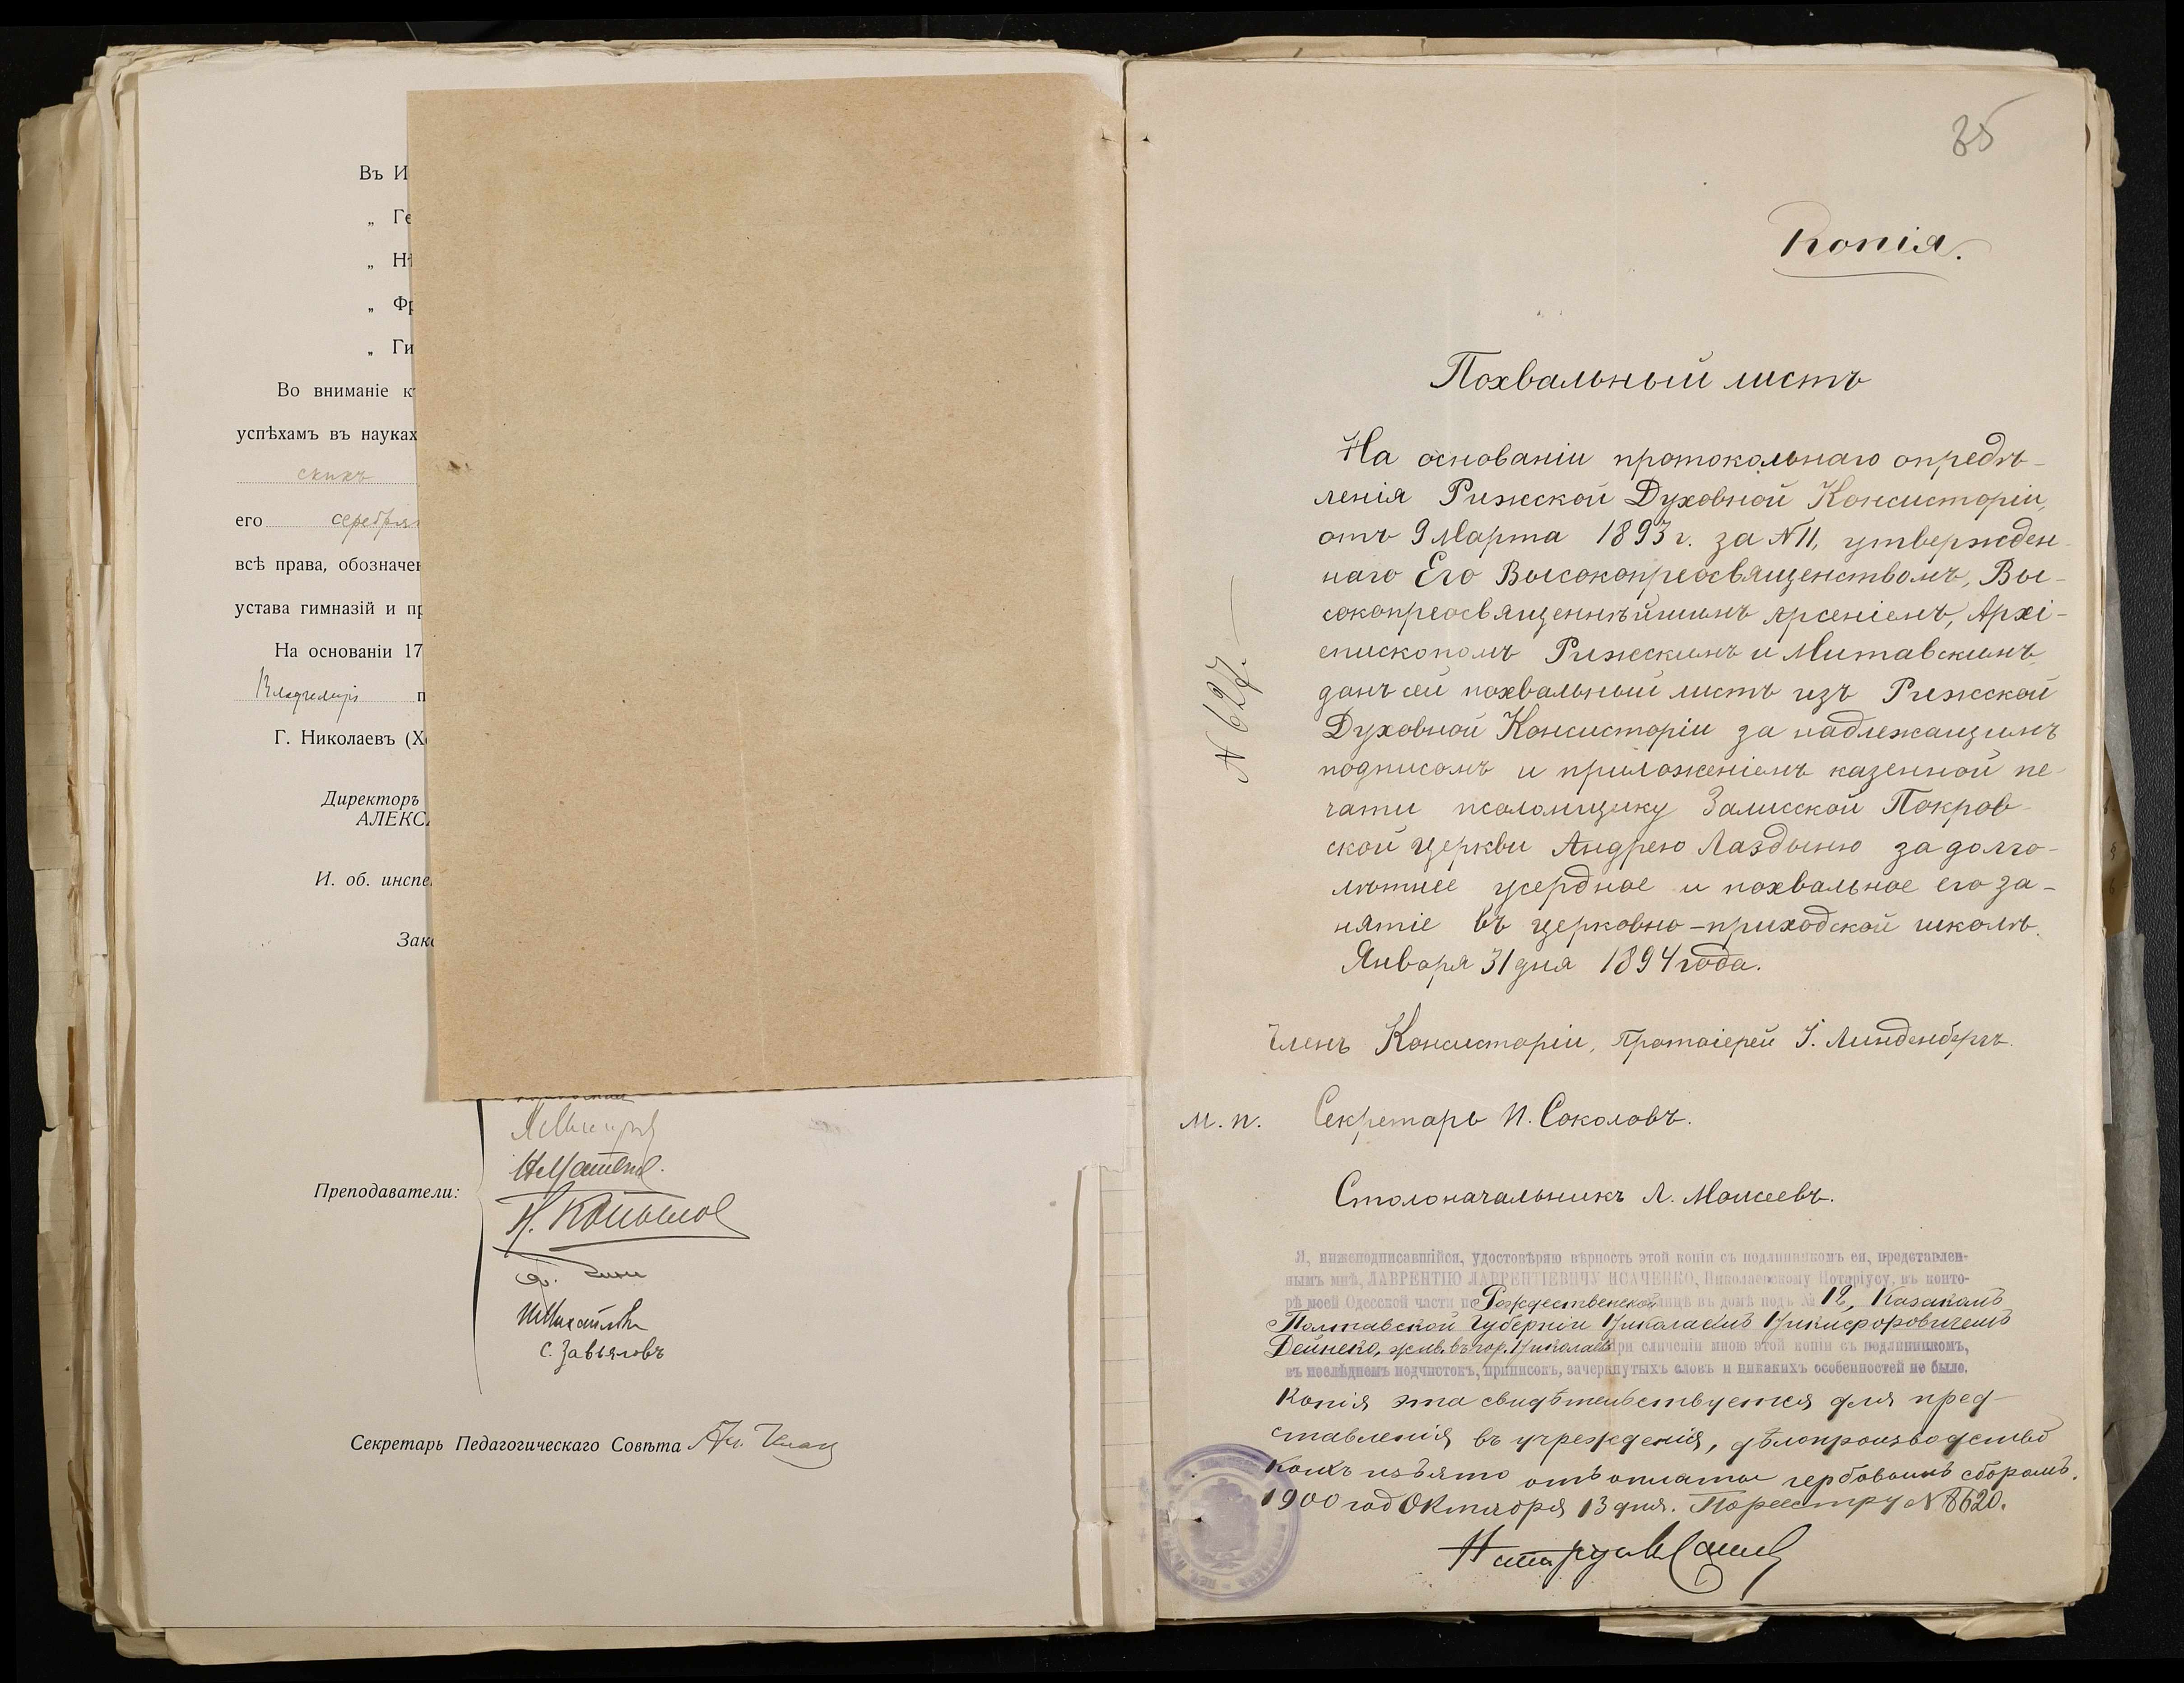 Въ И
„ Ге
„ Нѣ
„ Фр
„ Ги
Во вниманіе къ
успѣхамъ въ науках
скихъ
его серебрян
всѣ права, обозначен
устава гимназій и пр
На основаніи 17
Владимірѣ п
Г. Николаевъ (Хе
Директоръ
АЛЕКСА
И. об. инспе
Зако
Преподаватели:
С. Завьяловъ
Секретарь Педагогическаго Совѣта
35
Копія.
Похвальный листъ
На основаніи протокольнаго опредѣ-
ленія Рижской Духовной Консисторіи,
отъ 9 Марта 1893 г. за № 11, утвержден-
наго Его Высокопреосвященствомъ, Вы-
сокопреосвященнѣйшимъ Арсеніемъ, Архі-
епископомъ Рижскимъ и Митавскимъ,
данъ сей похвальный листъ изъ Рижской
Духовной Консисторіи за надлежащимъ
подписомъ и приложеніемъ казенной пе-
чати псаломщику Залисской Покров-
ской церкви Андрею Лаздыню за долго-
лѣтнее усердное и похвальное его за-
нятіе въ церковно-приходской школѣ.
Января 31 дня 1894 года.
№ 627.
Членъ Консисторіи, Протоіерей І. Линденбергъ.
М. П. Секретарь П. Соколовъ.
Столоначальникъ Л. Моисеевъ.
Я, нижеподписавшійся, удостовѣряю вѣрность этой копіи съ подлинникомъ ея, представлен-
нымъ мнѣ, ЛАВРЕНТІЮ ЛАВРЕНТІЕВИЧУ ИСАЧЕНКО, Николаевскому Нотаріусу, въ конто-
рѣ моей Одесской части по Рождественской улицѣ въ домѣ подъ № 12, Казакомъ
Полтавской Губерніи Николаемъ Никифоровичемъ
Дейнеко, жив. въ гор. Николаевѣ При сличеніи мною этой копіи съ подлинникомъ,
въ послѣднемъ подчистокъ, приписокъ, зачеркнутыхъ словъ и никакихъ особенностей не было.
Копія эта свидѣтельствуется для пред-
ставленія въ учрежденія, дѣлопроизводство
коихъ изъято отъ оплаты гербовымъ сборомъ.
1900 год Октября 13 дня. По реестру № 8620.